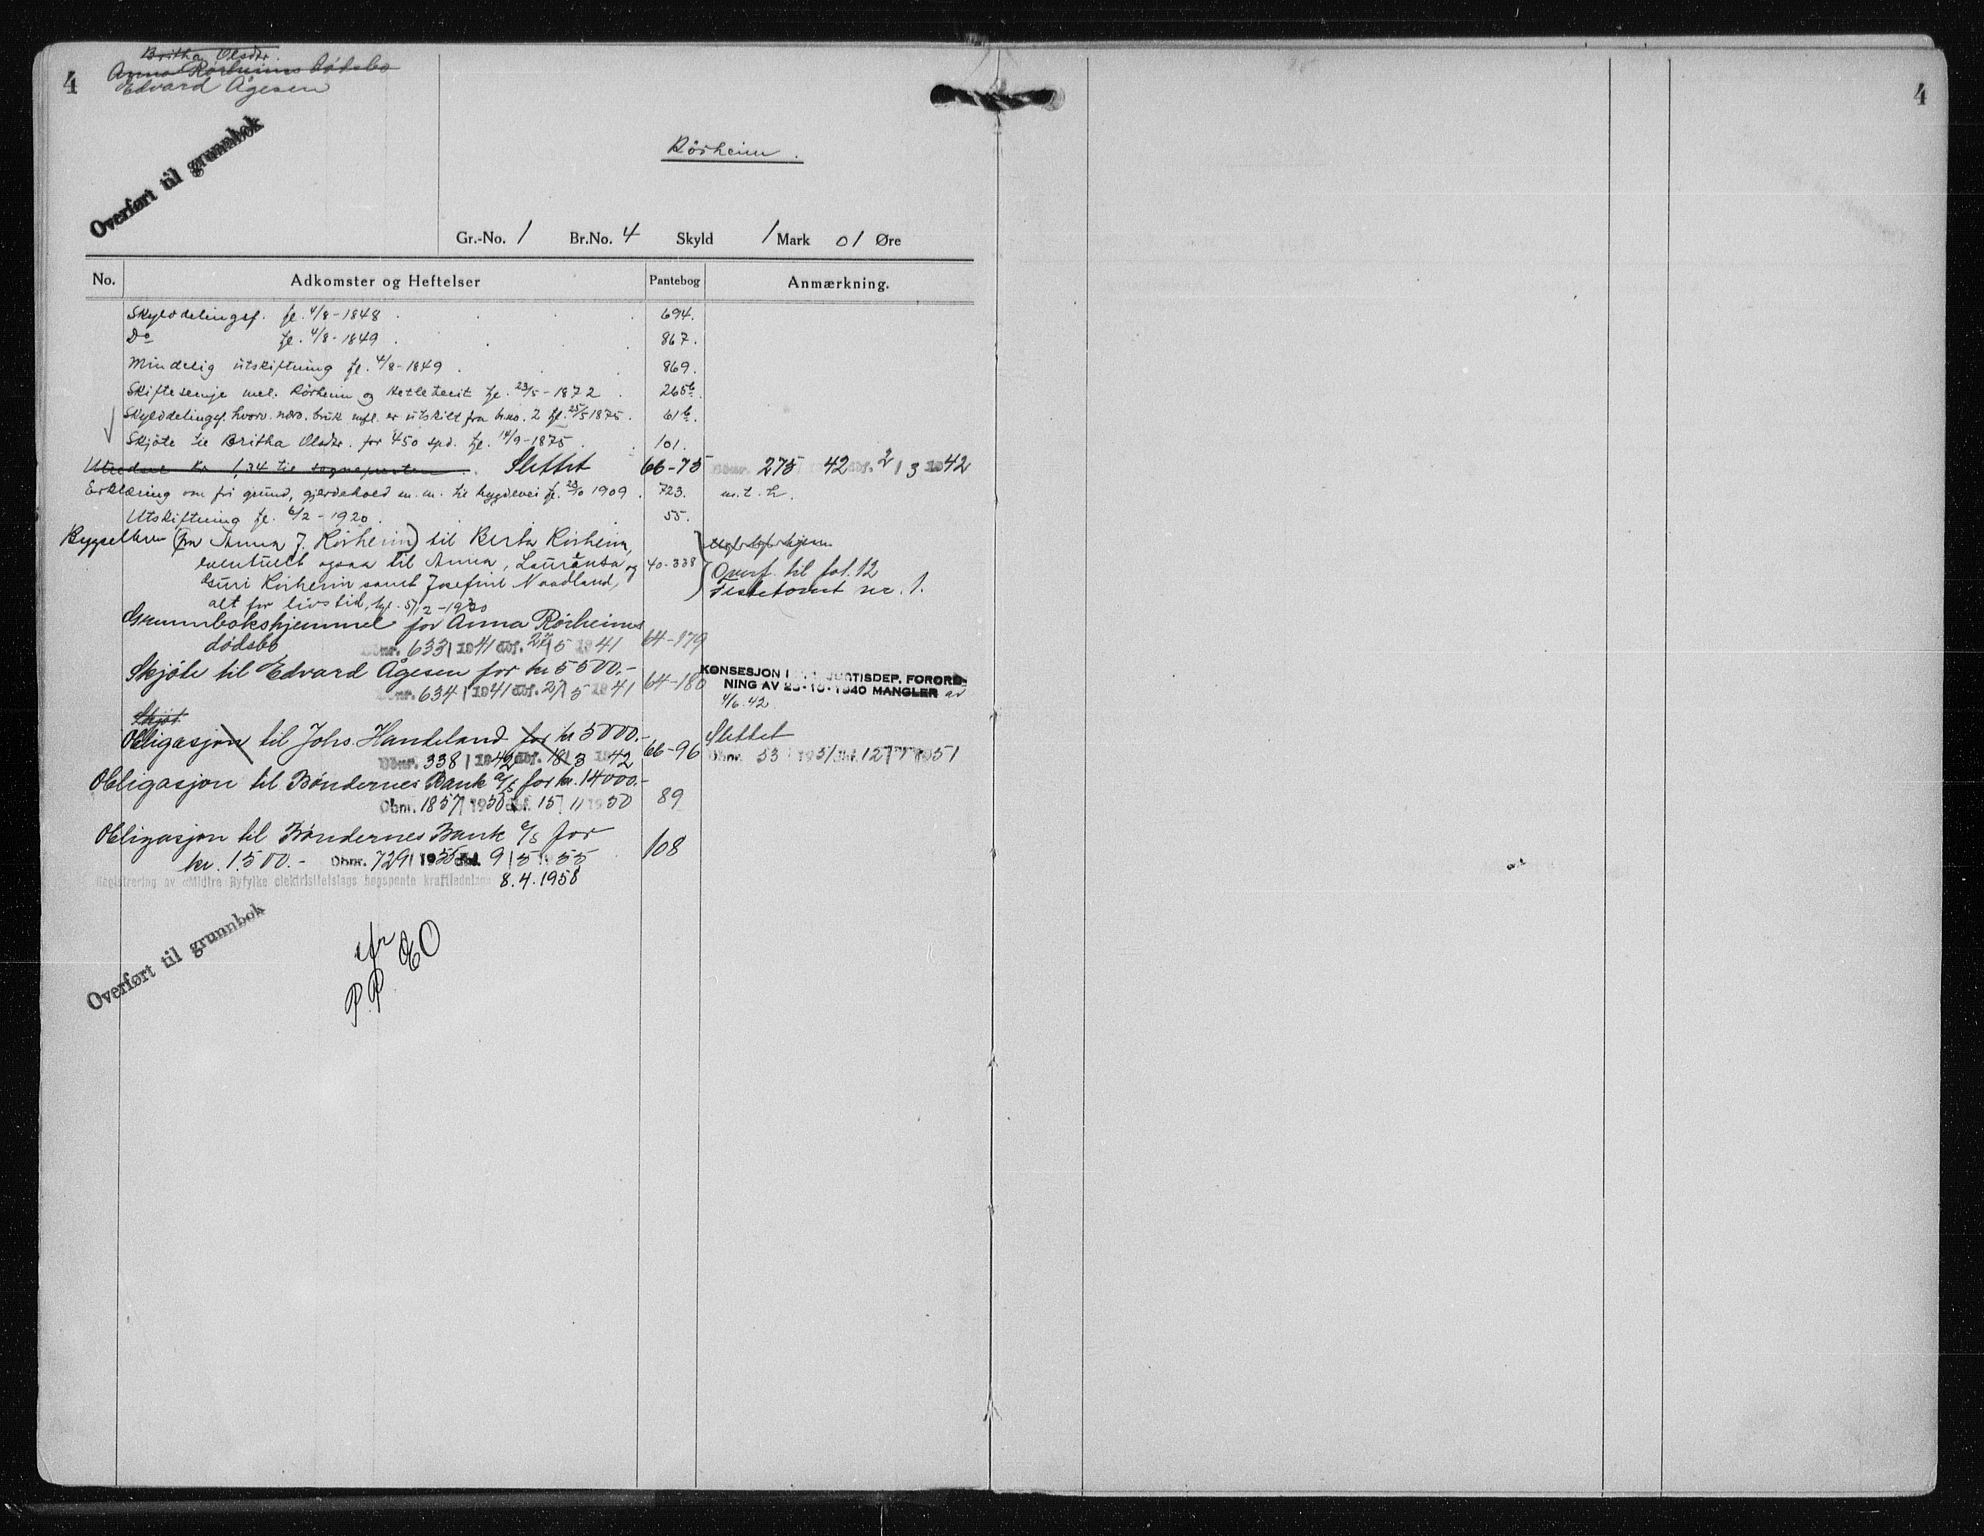 4
Britha Olsdtr.
Anna Rørheims dødsbo
Edvard Ågesen
Overført til grunnbok
Rørheim.
Gr.-No. 1 Br.No. 4 Skyld 1 Mark 01 Øre
No. Adkomster og Heftelser Pantebog Anmærkning.
Skylddelingsf. tl. 4/8-1848 694.
Do tl. 4/8-1849 867.
Mindelig utskiftning tl. 4/8-1849 869.
Skiftelinje mel. Rørheim og tl. 23/5-1872 265b.
Skylddelingsf. hvorv. nærv. bruk mfl. er utskilt fra br.no. 2 tl. 25/5 1875. 61b.
Skjøte til Britha Olsdtr. for 450 spd. tl. 14/9-1875 101.
Utredsel kr 1,34 til sognepresten. Slettet 66-75 Dbnr. 275 1942 dbf. 2/3 1942
Erklæring om fri grund, gjerdehold m.m. til bygdevei tl. 23/10 1909. 723. m.t.h.
Utskiftning tl. 6/2-1920. 55.
Bygselbrev (fra Anna J. Rørheim) til Berta Rørheim,
eventuelt ogsaa til Anna, Laurensa og 40-338
Guri Rørheim samt Josefine Naadland, Overf. til fol. 12
alt for livstid, tgl. 5/12-1930 Festetomt nr. 1.
Grunnbokshjemmel for Anna Rørheims
dødsbo Dbnr. 633/1941 dbf. 27/5 1941 64-179
Skjöte til Edvard Ågesen for kr 5500.-
Dbnr. 634/1941 dbf. 27/5 1941 64-180
KONSESJON I JUSTISDEP. FORORD-
NING AV 23-10-1940 MANGLER
4/6.42
Skjøt
Obligasjon til Johs. Handeland for kr 5000.- Slettet
Dbnr. 338/1942 dbf. 18/3 1942 66-96 Dbnr. 53 1951 dbf. 12 1951
Obligasjon til Bøndernes Bank a/s for kr. 14000.-
Dbnr. 1857/1950 dbf. 15/11 1950 89
Obligasjon til Bøndernes Bank a/s for
kr. 1.500.- Dbnr. 729/1955 dbf. 9/5 1955 108
Registrering av «Midtre Ryfylke elektrisitetslags begapente kraftledning» 8.4.1958
Overført til grunnbok
cfr
P.P. EO
4